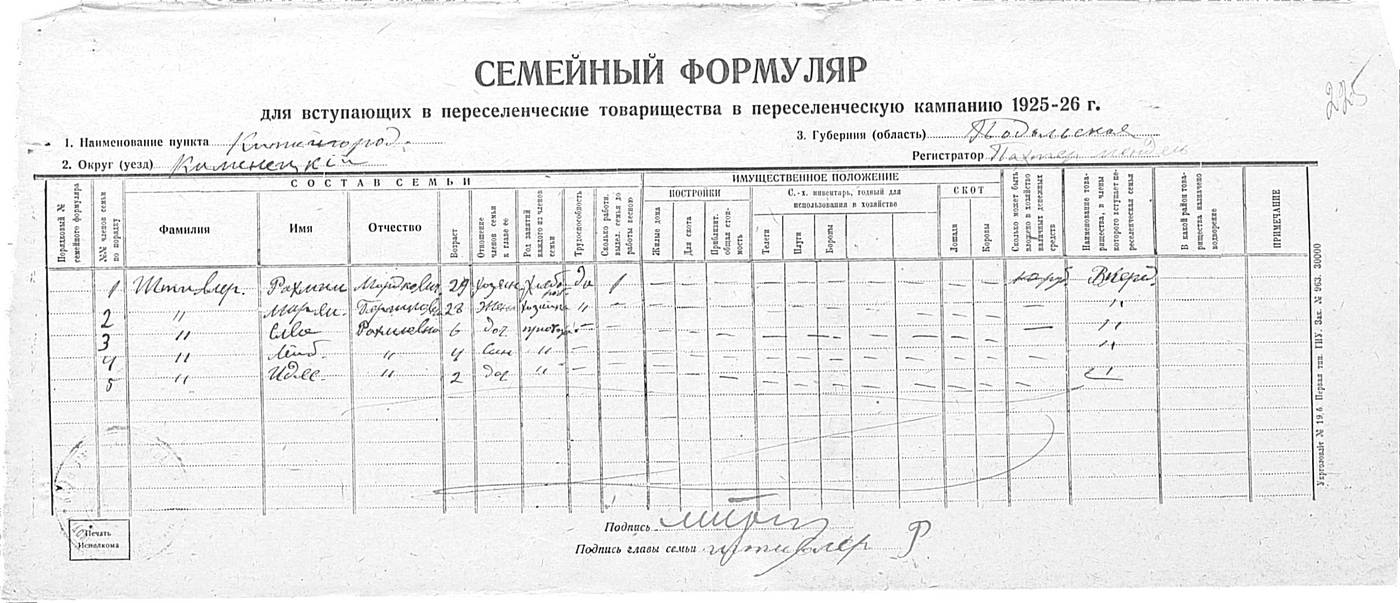 СЕМЕЙНЫЙ ФОРМУЛЯР
для вступающих в переселенческие товарищества в переселенческую кампанию 1925-26 г.
225
1. Наименование пункта Китайгород.
3. Губерния (область) Подольская
2. Округ (уезд) Каменецкий
Регистратор
СОСТАВ СЕМЬИ
ИМУЩЕСТВЕННОЕ ПОЛОЖЕНИЕ
Порядковый № семейного формуляра
№№ членов семьи по порядку
Фамилия
Имя
Отчество
Возраст
Отношение членов семьи к главе ее
Род занятий каждого из членов семьи
Трудоспособность
Сколько работн. выдел. семья до работы весною
ПОСТРОЙКИ
Жилые дома
Для скота
Приблизит. общая стоимость
С.-х. инвентарь, годный для использования в хозяйстве
Телеги
Плуги
Бороны
СКОТ
Лошади
Коровы
Сколько может быть вложено в хозяйство наличных денежных средств
Наименование товарищества, в члены которого вступает переселенческая семья
В какой район товарищества назначено водворение
ПРИМЕЧАНИЕ
1 29 да 1 — — — — — — — — — —
2 " 28 жена " " — — — — — — — — —
3 " 6 доч. — — — — — — — — — — — "
4 " Лейб " 4 сын " — — — — — — — — — — — "
5 " " 2 доч " — — — — — — — — — — — "
Печать Исполкома
Подпись
Подпись главы семьи Р
Укрголовліт № 19.6. Первая тип. ГИУ. Зак. № 963. 30000